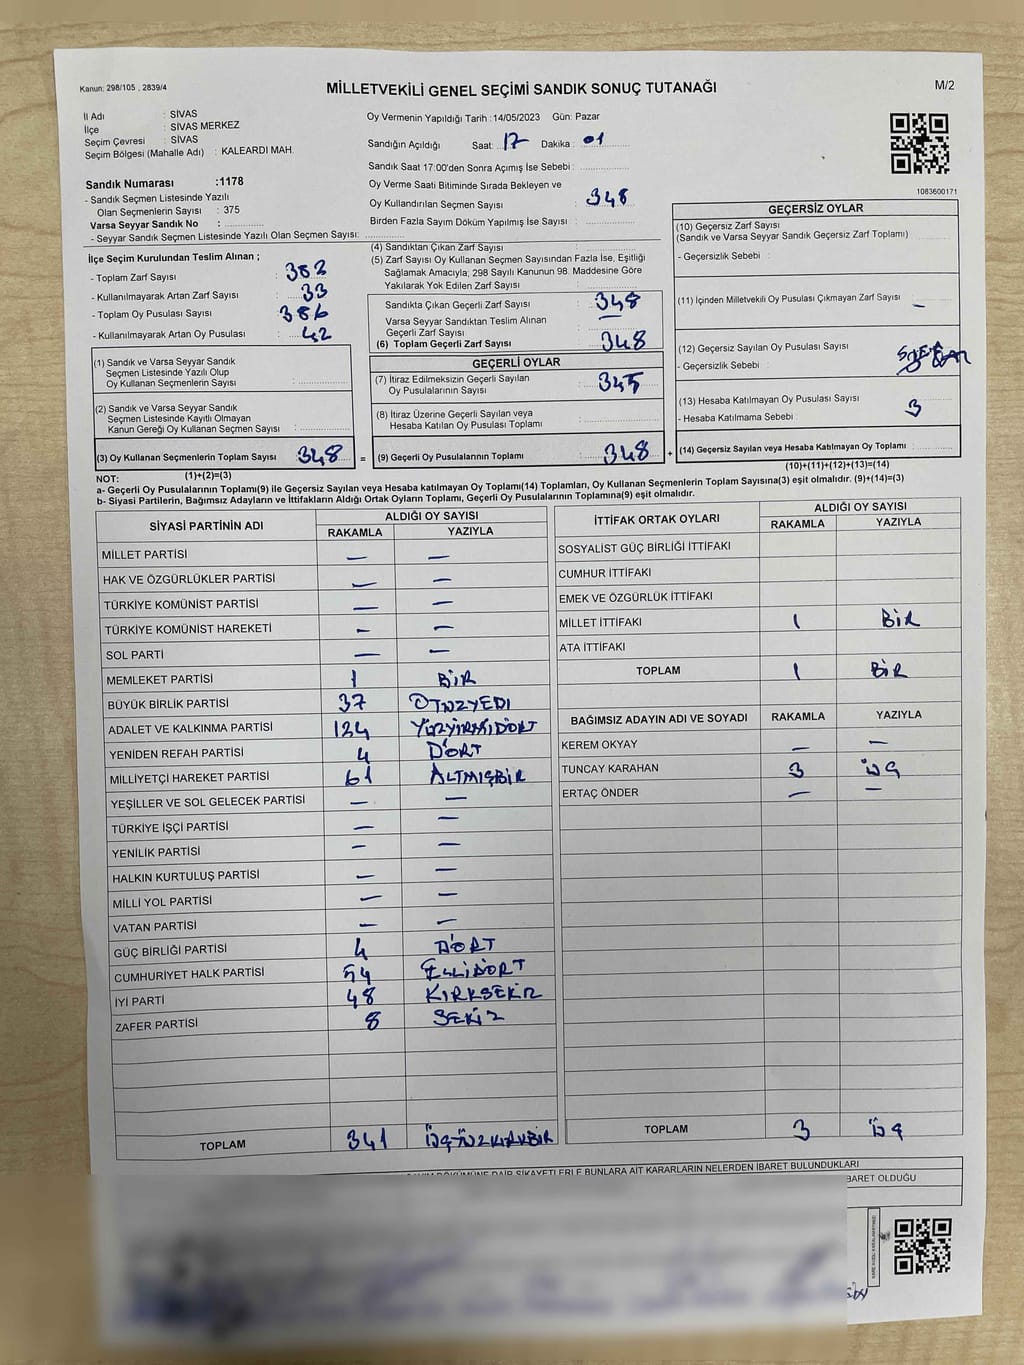 Kanun: 298/105 , 2839/4
MİLLETVEKİLİ GENEL SEÇİMİ SANDIK SONUÇ TUTANAĞI
M/2
İl Adı : SİVAS
İlçe : SİVAS MERKEZ
Seçim Çevresi : SİVAS
Seçim Bölgesi (Mahalle Adı) : KALEARDI MAH.
Sandık Numarası :1178
- Sandık Seçmen Listesinde Yazılı
Olan Seçmenlerin Sayısı : 375
Varsa Seyyar Sandık No :
- Seyyar Sandık Seçmen Listesinde Yazılı Olan Seçmen Sayısı:
Oy Vermenin Yapıldığı Tarih :14/05/2023 Gün: Pazar
Sandığın Açıldığı Saat: 17 Dakika : 01
Sandık Saat 17:00'den Sonra Açımış İse Sebebi :
Oy Verme Saati Bitiminde Sırada Bekleyen ve
Oy Kullandırılan Seçmen Sayısı : 348
Birden Fazla Sayım Döküm Yapılmış İse Sayısı :
1083600171
İlçe Seçim Kurulundan Teslim Alınan ;
- Toplam Zarf Sayısı : 382
- Kullanılmayarak Artan Zarf Sayısı : 33
- Toplam Oy Pusulası Sayısı : 386
- Kullanılmayarak Artan Oy Pusulası : 42
(1) Sandık ve Varsa Seyyar Sandık
Seçmen Listesinde Yazılı Olup
Oy Kullanan Seçmenlerin Sayısı :
(2) Sandık ve Varsa Seyyar Sandık
Seçmen Listesinde Kayıtlı Olmayan
Kanun Gereği Oy Kullanan Seçmen Sayısı :
(3) Oy Kullanan Seçmenlerin Toplam Sayısı 348 =
(1)+(2)=(3)
(4) Sandıktan Çıkan Zarf Sayısı :
(5) Zarf Sayısı Oy Kullanan Seçmen Sayısından Fazla İse, Eşitliği
Sağlamak Amacıyla; 298 Sayılı Kanunun 98. Maddesine Göre
Yakılarak Yok Edilen Zarf Sayısı :
Sandıkta Çıkan Geçerli Zarf Sayısı : 348
Varsa Seyyar Sandıktan Teslim Alınan
Geçerli Zarf Sayısı : —
(6) Toplam Geçerli Zarf Sayısı : 348
GEÇERLİ OYLAR
(7) İtiraz Edilmeksizin Geçerli Sayılan
Oy Pusulalarının Sayısı : 345
(8) İtiraz Üzerine Geçerli Sayılan veya
Hesaba Katılan Oy Pusulası Toplamı :
(9) Geçerli Oy Pusulalarının Toplamı : 348 +
GEÇERSİZ OYLAR
(10) Geçersiz Zarf Sayısı
(Sandık ve Varsa Seyyar Sandık Geçersiz Zarf Toplamı)
- Geçersizlik Sebebi :
(11) İçinden Milletvekili Oy Pusulası Çıkmayan Zarf Sayısı : —
(12) Geçersiz Sayılan Oy Pusulası Sayısı :
- Geçersizlik Sebebi :
(13) Hesaba Katılmayan Oy Pusulası Sayısı : 3
- Hesaba Katılmama Sebebi :
(14) Geçersiz Sayılan veya Hesaba Katılmayan Oy Toplamı :
(10)+(11)+(12)+(13)=(14)
NOT:
a- Geçerli Oy Pusulalarının Toplamı(9) ile Geçersiz Sayılan veya Hesaba katılmayan Oy Toplamı(14) Toplamları, Oy Kullanan Seçmenlerin Toplam Sayısına(3) eşit olmalıdır. (9)+(14)=(3)
b- Siyasi Partilerin, Bağımsız Adayların ve İttifakların Aldığı Ortak Oyların Toplamı, Geçerli Oy Pusulalarının Toplamına(9) eşit olmalıdır.
SİYASİ PARTİNİN ADI ALDIĞI OY SAYISI
RAKAMLA YAZIYLA
MİLLET PARTİSİ — —
HAK VE ÖZGÜRLÜKLER PARTİSİ — —
TÜRKİYE KOMÜNİST PARTİSİ — —
TÜRKİYE KOMÜNİST HAREKETİ — —
SOL PARTİ — —
MEMLEKET PARTİSİ 1 BİR
BÜYÜK BİRLİK PARTİSİ 37 OTUZYEDİ
ADALET VE KALKINMA PARTİSİ 124 YÜZYİRMİDÖRT
YENİDEN REFAH PARTİSİ 4 DÖRT
MİLLİYETÇİ HAREKET PARTİSİ 61 ALTMIŞBİR
YEŞİLLER VE SOL GELECEK PARTİSİ — —
TÜRKİYE İŞÇİ PARTİSİ — —
YENİLİK PARTİSİ — —
HALKIN KURTULUŞ PARTİSİ — —
MİLLİ YOL PARTİSİ — —
VATAN PARTİSİ — —
GÜÇ BİRLİĞİ PARTİSİ 4 DÖRT
CUMHURİYET HALK PARTİSİ 54 ELLİDÖRT
İYİ PARTİ 48 KIRKSEKİZ
ZAFER PARTİSİ 8 SEKİZ
TOPLAM 341 ÜÇYÜZKIRKBİR
İTTİFAK ORTAK OYLARI ALDIĞI OY SAYISI
RAKAMLA YAZIYLA
SOSYALİST GÜÇ BİRLİĞİ İTTİFAKI
CUMHUR İTTİFAKI
EMEK VE ÖZGÜRLÜK İTTİFAKI
MİLLET İTTİFAKI 1 BİR
ATA İTTİFAKI
TOPLAM 1 BİR
BAĞIMSIZ ADAYIN ADI VE SOYADI RAKAMLA YAZIYLA
KEREM OKYAY — —
TUNCAY KARAHAN 3 ÜÇ
ERTAÇ ÖNDER — —
TOPLAM 3 ÜÇ
DÖKÜMÜNE DAİR ŞİKAYETLERLE BUNLARA AİT KARARLARIN NELERDEN İBARET BULUNDUKLARI
BARET OLDUĞU